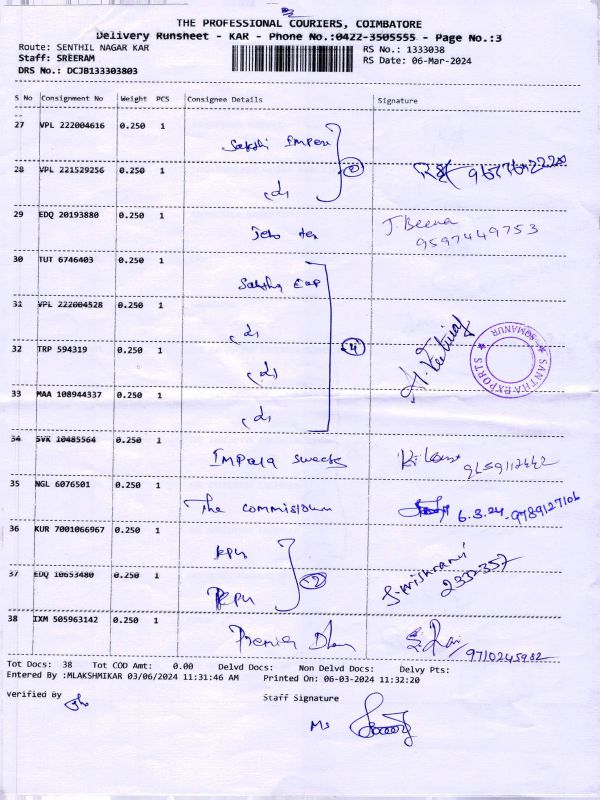 THE PROFESSIONAL COURIERS, COIMBATORE
Delivery Runsheet - KAR - Phone No.:0422-3505555 - Page No.:3
Route: SENTHIL NAGAR KAR
RS No.: 1333038
Staff: SREERAM
RS Date: 06-Mar-2024
DRS No.: DCJB133303803
S No Consignment No Weight PCS Consignee Details Signature
27 VPL 222004616 0.250 1
28 VPL 221529256 0.250 1
29 EDQ 20193880 0.250 1 J. Beena
9597449753
30 TUT 6746403 0.250 1
31 VPL 222004528 0.250 1
4
32 TRP 594319 0.250 1
SANTHA EXPORTS ★ SOMANUR ★
33 MAA 108944337 0.250 1
34 SVK 10485564 0.250 1 Impala sweets
35 NGL 6076501 0.250 1 The commissioner 6.3.24. 9789127106
36 KUR 7001066967 0.250 1 KPN
37 EDQ 10653480 0.250 1 KPN 2 2332357
38 IXM 505963142 0.250 1 Premier 9710245902
Tot Docs: 38 Tot COD Amt: 0.00 Delvd Docs: Non Delvd Docs: Delvy Pts:
Entered By :MLAKSHMIKAR 03/06/2024 11:31:46 AM Printed On: 06-03-2024 11:32:20
Verified By Staff Signature